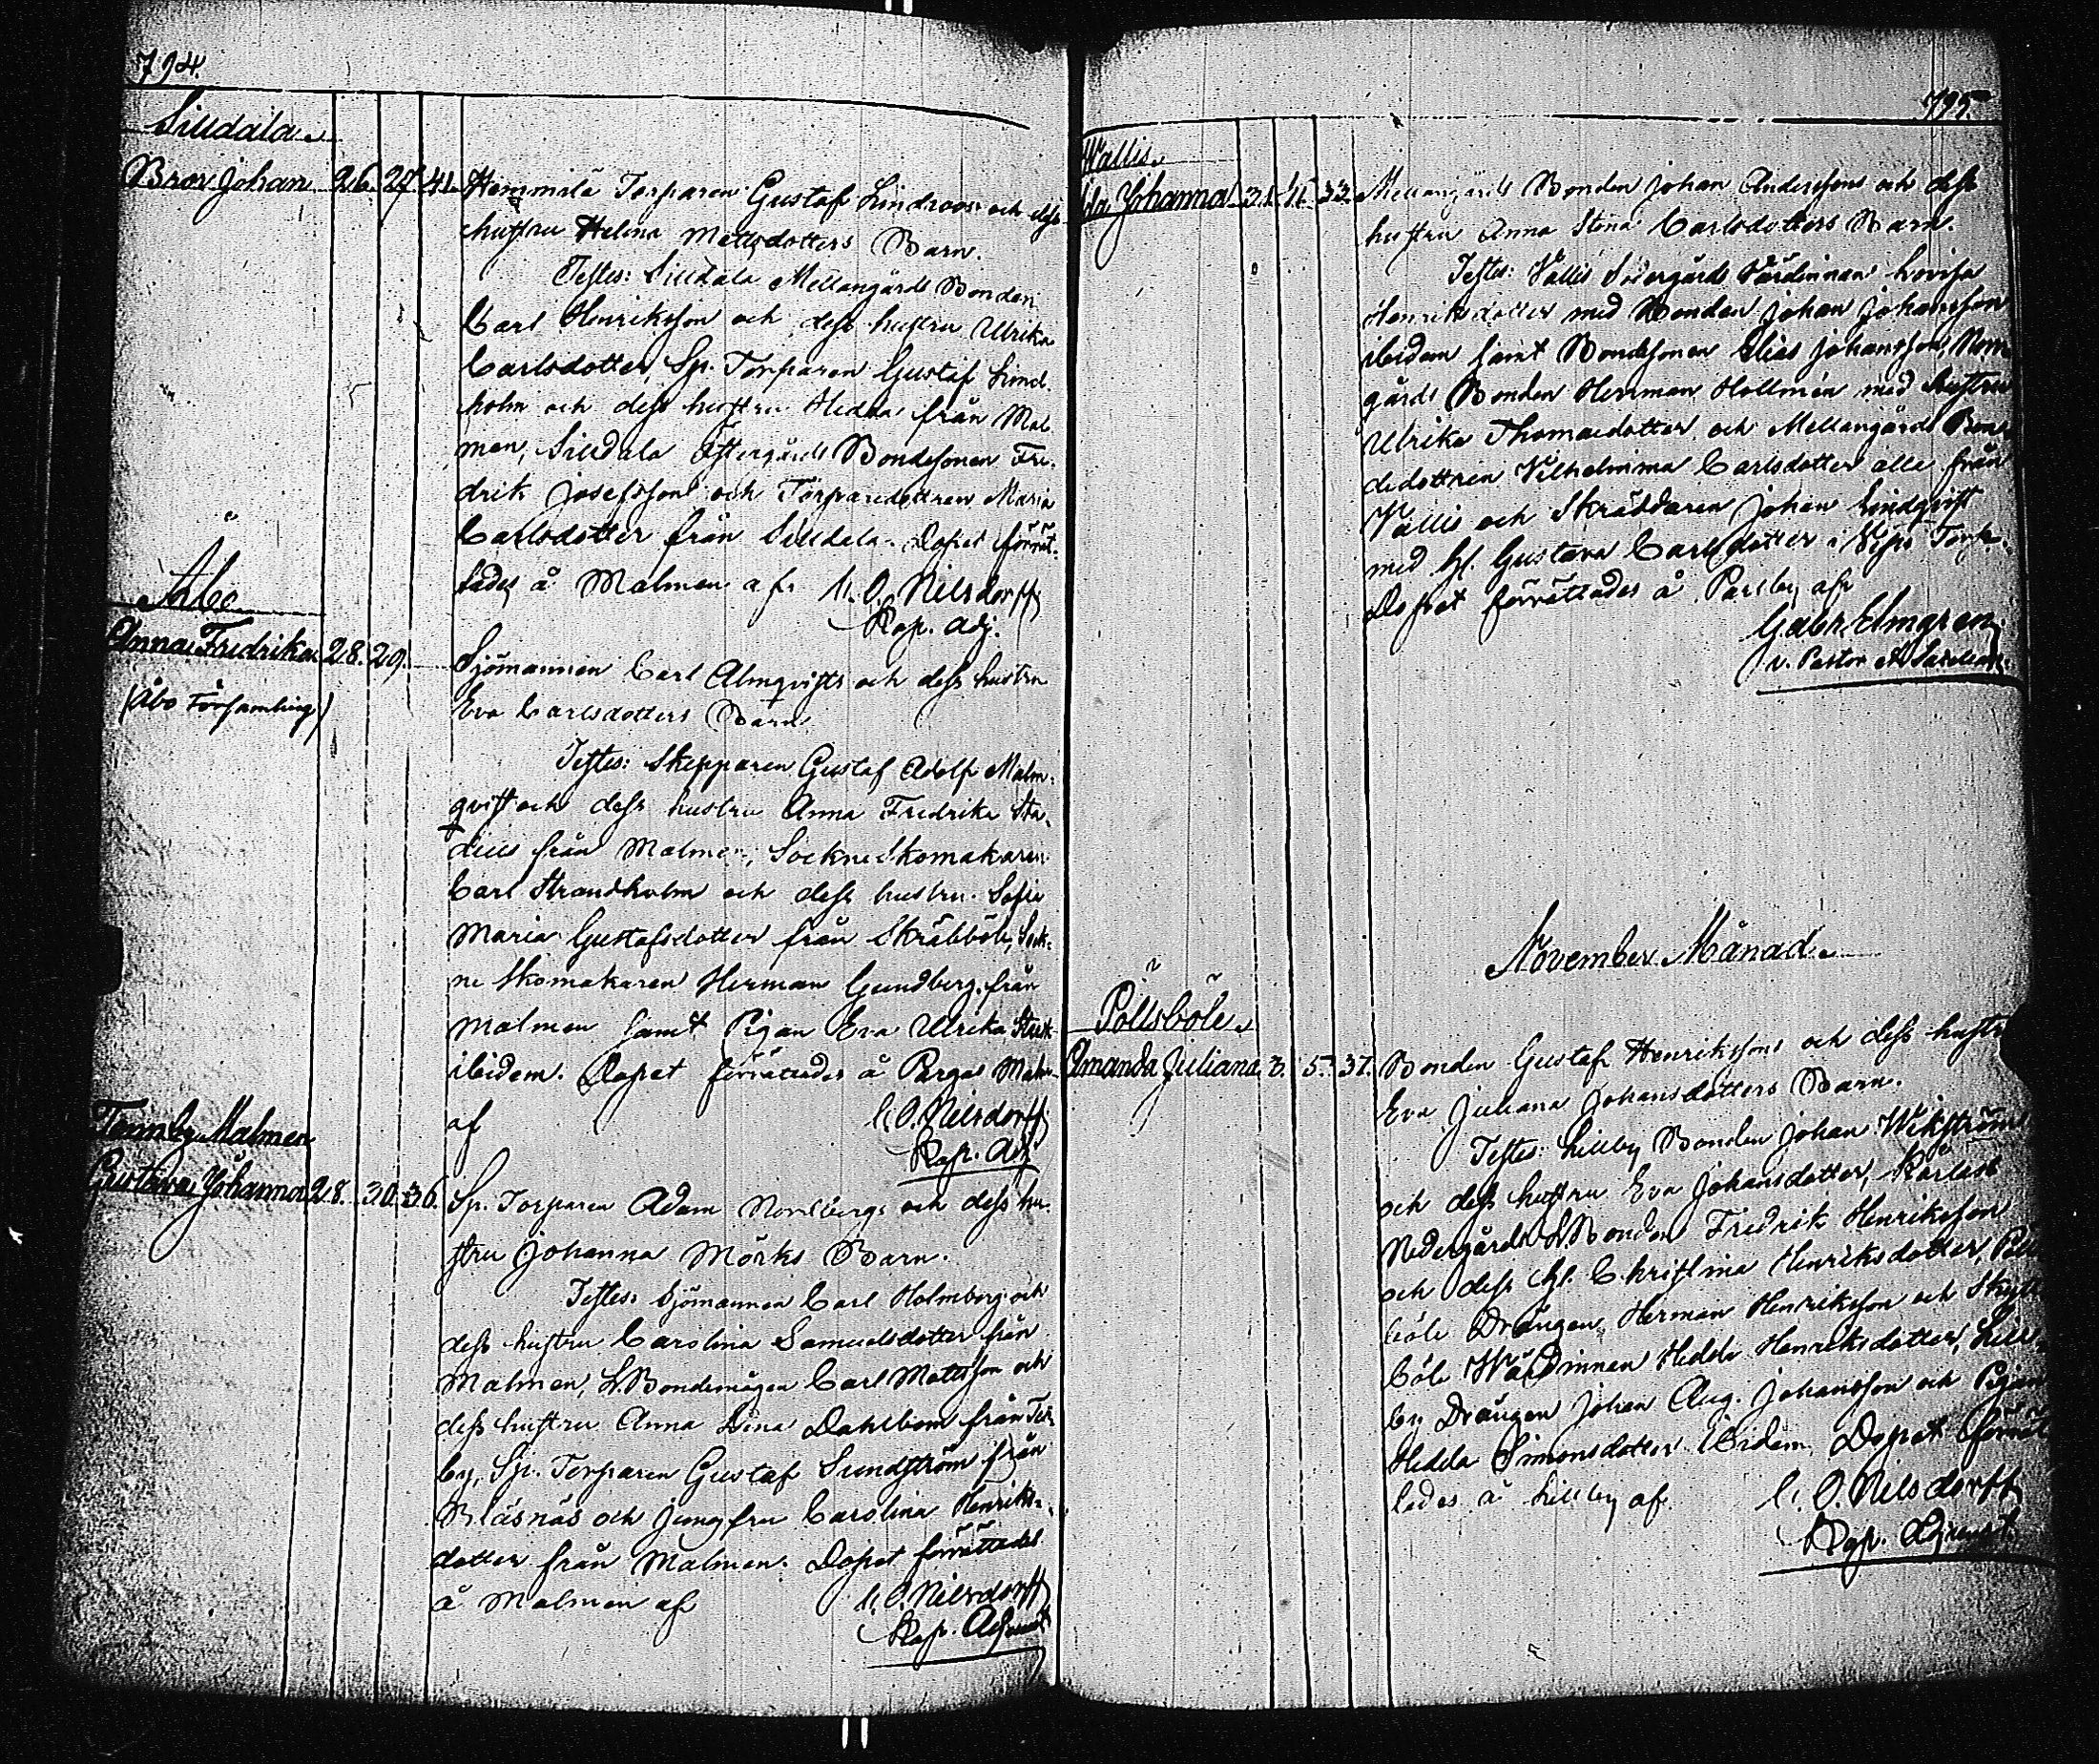 794.
Silldala
Bror Johan 26. 27. 41. Hemmilä Torparen Gustaf Lindroos och dess
hustru Helena Mattsdotters Barn.
Testes: Silldala Mellangårds Bonden
Carl Henriksson och dess hustru Ulrika
Carlsdotter, Sp. Torparen Gustaf Lind-
holm och dess hustru Hedda från Mal-
men, Silldala Östergårds Bondesonen Fre-
drik Josefsson och Torparedottren Maria
Carlsdotter från Silldala. Dopet förrät-
tades å Malmen af C. O. Nilsdorff
Kap. Adj.
Åbo
Anna Fredrika 28. 29. Sjömannen Carl Almqvists och dess hustru
(Åbo Församling) Eva Carlsdotters Barn.
Testes: Skepparen Gustaf Adolf Malm-
qvist och dess hustru Anna Fredrika Sta-
dius från Malmen, Sockneskomakaren
Carl Strandholm och dess hustru Sofia
Maria Gustafsdotter från Skräbböle, Sock-
ne Skomakaren Herman Grundberg från
Malmen samt Pigan Eva Ulrika
ibidem. Dopet förrättades å Pargas Malm
af C. O. Nilsdorff
Kap. Adj
Tennby Malmen
Gustava Johanna 28. 30. 36. Sp. Torparen Adam Nordbergs och dess hu-
stru Johanna Mörks Barn.
Testes: Sjömannen Carl Holmberg och
dess hustru Carolina Samuelsdotter från
Malmen, L. Bondemågen Carl Mattsson och
dess hustru Anna Lina Dahlbom från
by, Sp. Torparen Gustaf Sundström från
Bläsnäs och Jungfru Carolina Henriks-
dotter från Malmen. Dopet förrättades
å Malmen af C. O. Nilsdorff
Kap. Adjunct
795.
Wallis
Ida Johanna 31. 11. 33. Mellangårds Bonden Johan Anderssons och dess
hustru Anna Stina Carlsdotters Barn.
Testes: Vallis Södergårds Värdinnan Lovisa
Henriksdotter med Bonden Johan Johansson
ibidem samt Bondesonen Elias Johansson, Norr-
gårds Bonden Herrman Hollmén med hustru
Ulrika Thomasdotter och Mellangårds Bon-
dedottren Vilhelmina Carlsdotter alla från
Vallis och Skräddaren Johan Lindqvist
med h. Gustava Carlsdotter i
Dopet förrättades å Parsby af
Gabr. Elmgren
v. Pastor
November Månad.
Pöllsböle
Amanda Juliana 3. 5. 37. Bonden Gustaf Henrikssons och dess hustru
Eva Juliana Johansdotters Barn.
Testes: Lillby Bonden Johan Wikström
och dess hustru Eva Johansdotter, Kårlax
Nedergårds L. Bonden Fredrik Henriksson
och dess h. Christina Henriksdotter, Pölls
böle Drängen Herman Henriksson och
böle Wärdinnan Hedda Henriksdotter, Lill-
by Drängen Johan Aug. Johansson och Pigan
Hedda Simonsdotter ibidem. Dopet förrät
tades å Lillby af C. O. Nilsdorff
Kap. Adjunct